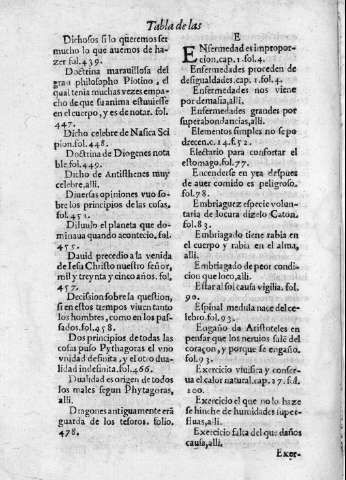 Tabla de las
Dichosos si lo queremos ser
mucho lo que auemos de ha-
zer fol.439.
Doctrina marauillosa del
gran philosopho Plotino, el
qual tenia muchas vezes empa-
cho de que su anima estuuiesse
en el cuerpo, y es de notar. fol.
447.
Dicho celebre de Nasica Sci
pion.fol.448.
Doctrina de Diogenes nota
ble.fol.449.
Dicho de Antisthenes muy
celebre,alli.
Diuersas opiniones vuo so-
bre los principios de las cosas.
fol.451.
Diluuio el planeta que do-
minaua quando acontecio, fol.
455.
Dauid precedio a la venida
de Iesu Christo nuestro señor,
mil y treynta y cinco años. fol,
457.
Decission sobre la question,
si en estos tiempos viuen tanto
los hombres, como en los pas-
sados.fol.458.
Dos principios de todas las
cosas puso Pythagoras el vno
vnidad definita, y el otro dua-
lidad indefinita.fol.466.
Dualidad es origen de todos
los males segun Phytagoras,
alli.
Dragones antiguamente erã
guarda de los tesoros. folio.
478.
E
ENfermedad es impropor-
cion.cap.1.fol.4.
Enfermedades proceden de
desigualdades.cap.1.fol.4.
Enfermedades nos viene
por demasia,alli.
Enfermedades grandes por
superabondancias,alli.
Elementos simples no se po
drecen.c.14.f.52.
Electurio para confortar el
estomago.fol.77.
Encenderse en yra despues
de auer comido es peligroso.
fol.78.
Embriaguez especie volun-
taria de locura dizelo Caton.
fol.83.
Embriagado tiene rabia en
el cuerpo y rabia en el alma,
alli.
Embriagado de peor condi
cion que loco,alli.
Estar al sol causa vigilia. fol.
90.
Espinal medula nace del ce-
lebro.fol.93.
Engaño de Aristoteles en
pensar que los neruios salẽ del
coraçon, y porque se engaño.
fol.93.
Exercicio viuifica y conser-
ua el calor natural.cap.27.fol.
100.
Exercicio el que no lo haze
se hinche de humidades super-
fluas,alli.
Exercicio falta del que daños
causa,alli.
Exer-